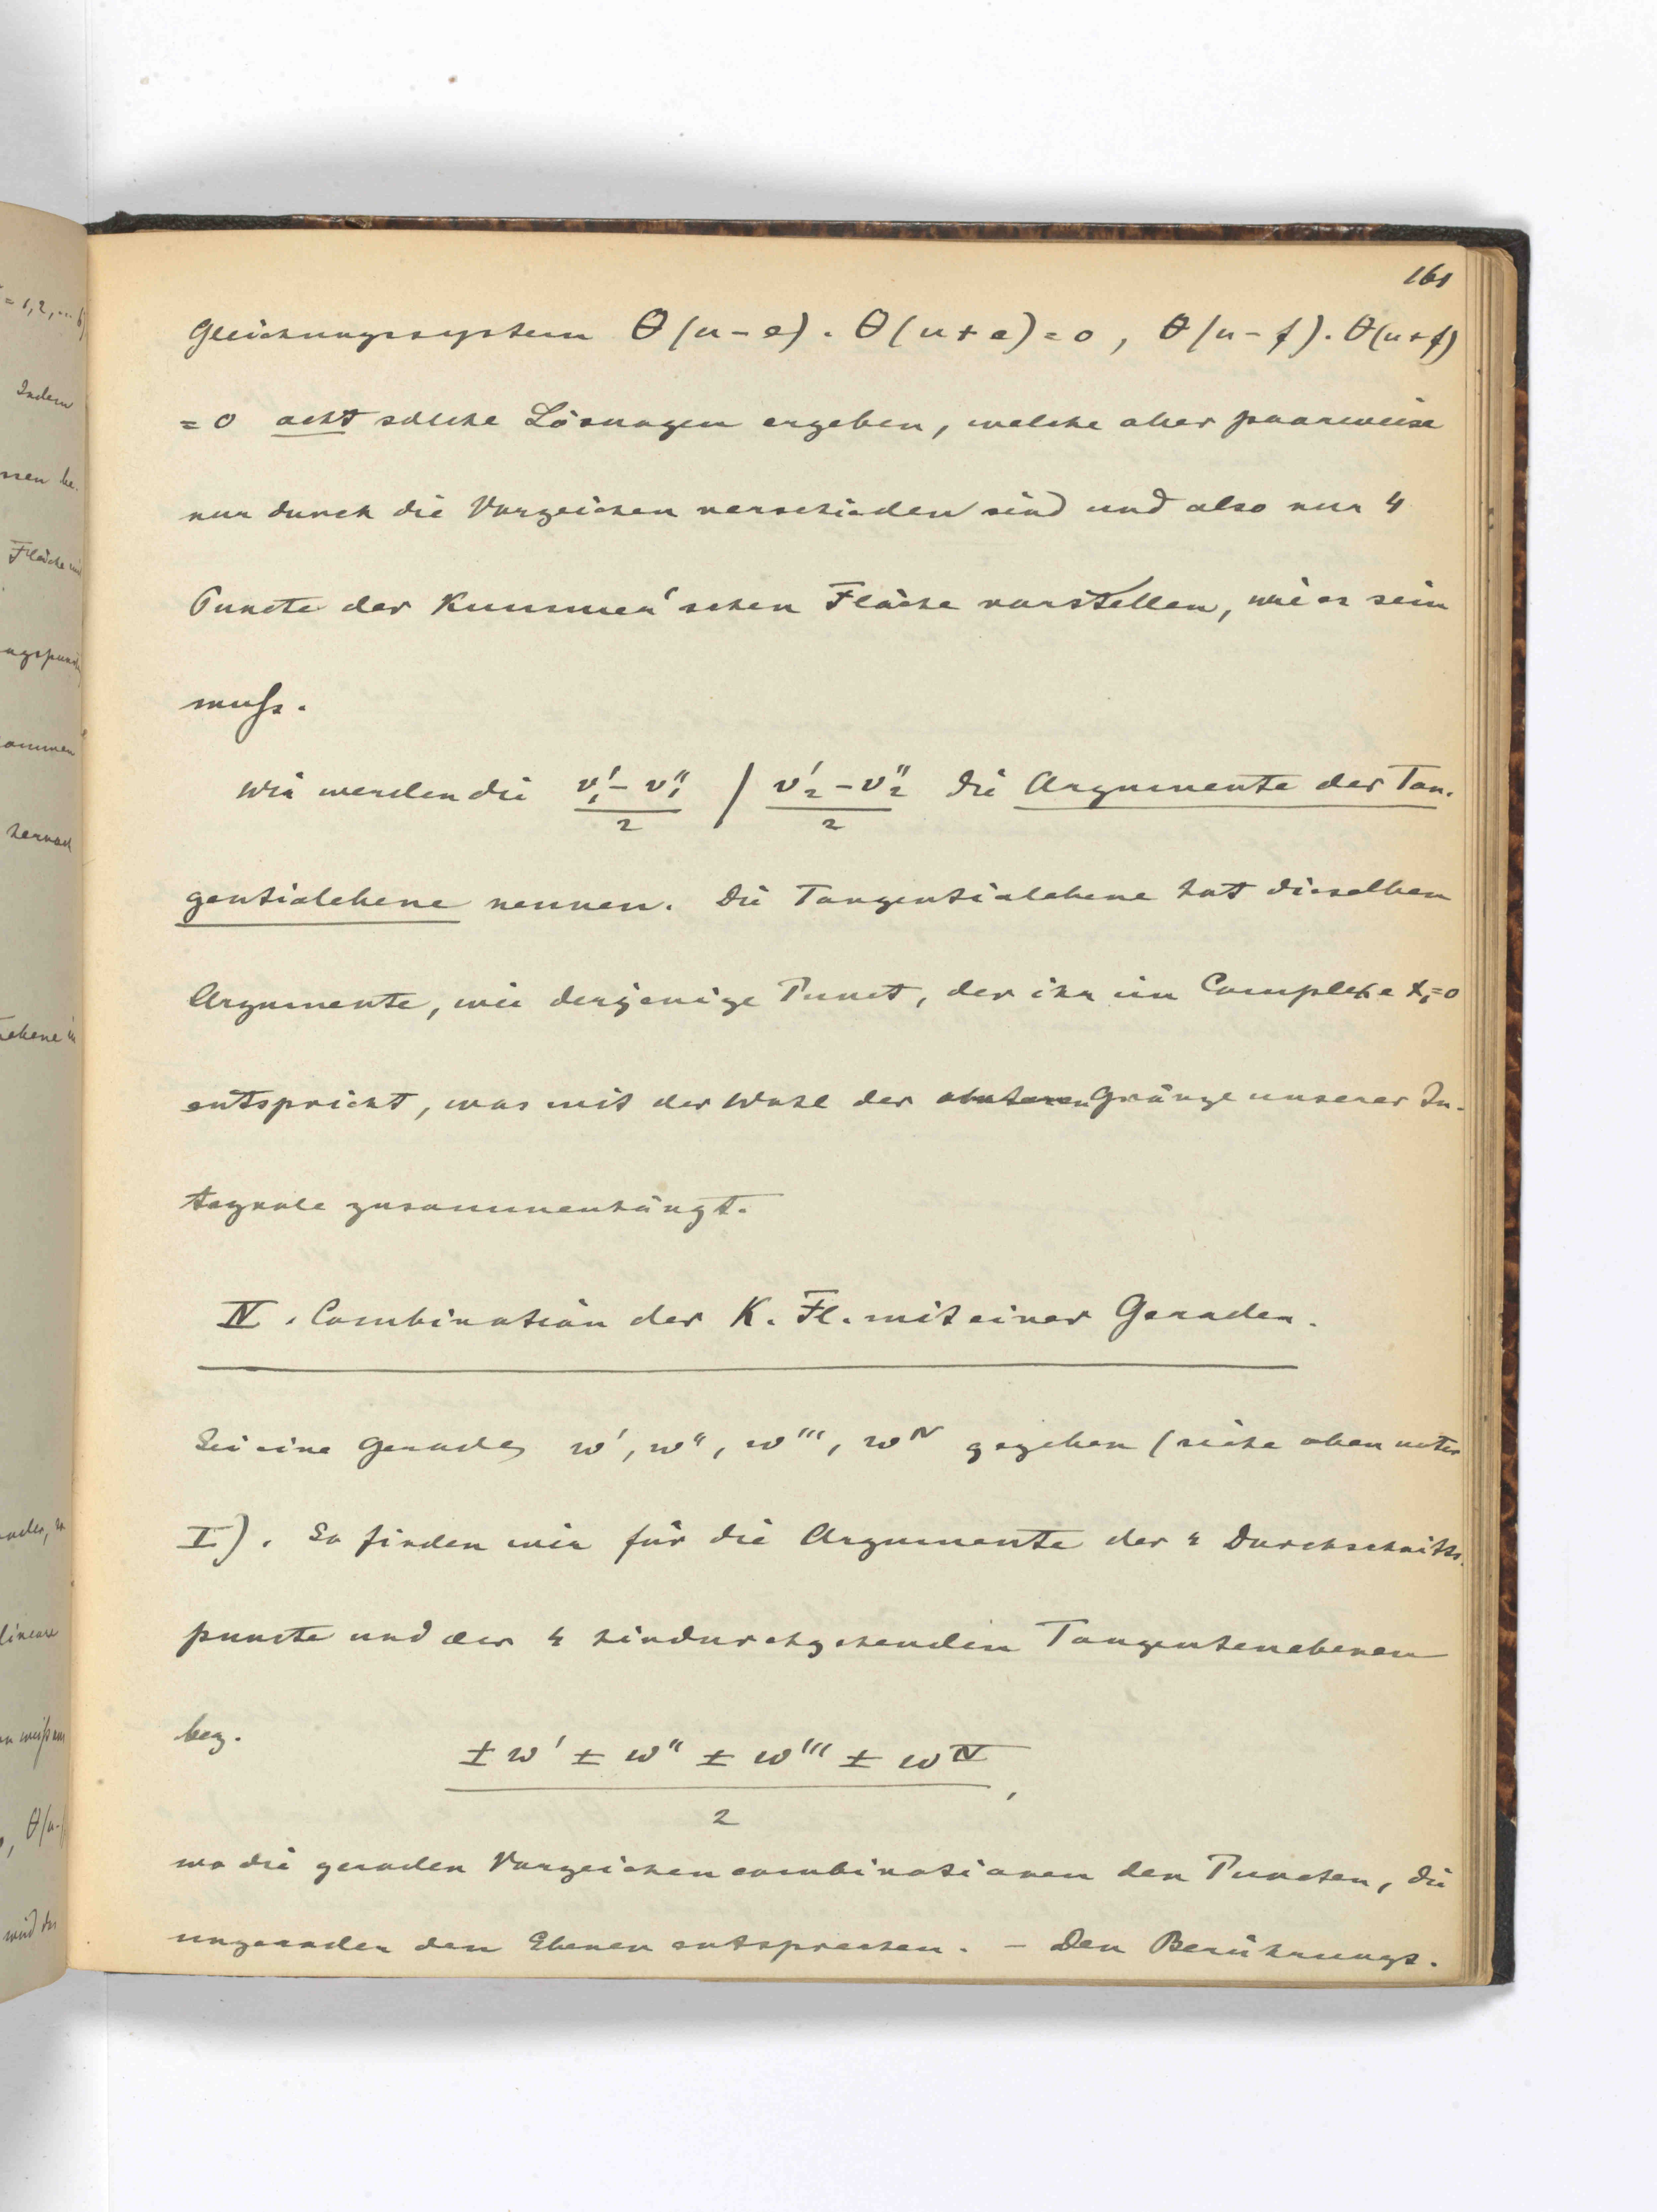 = 1, 2, ... 6
Indem
ssen be-
Fläche
ngspunct
kommen
hernach
ebene in
lineare
θ(u-
wird der
161
Gleichungssystem θ(u-e) . θ(u+e) = 0 , θ(u-f) . θ(u+f)
= 0 acht solche Lösungen ergeben, welche aber paarweise
nur durch die Vorzeichen verschieden sind und also nur 4
Puncte der Kummer'schen Fläche vorstellen, wie es sein
muß.
Wir werden die (v₁'-v₁'')/2 / (v₂'-v₂'')/2 die Argumente der Tan-
gentialebene nennen. Die Tangentialebene hat dieselben
Argumente, wie derjenige Punct, der ihr im Complexe x₁=0
entspricht, was mit der Wahl der unteren Gränze unserer In-
tegrale zusammenhängt.
IV. Combination der K. Fl. mit einer Geraden.
Sei eine Gerade w', w'', w''', w^IV gegeben (siehe oben unter
I). So finden wir für die Argumente der 4 Durchschnitts-
puncte und der 4 hindurchgehenden Tangentenebenen
bez.
(± w' ± w'' ± w''' ± w^IV)/2 ,
wo die geraden Vorzeichencombinationen den Puncten, die
ungeraden den Ebenen entsprechen. - Den Berührungs-